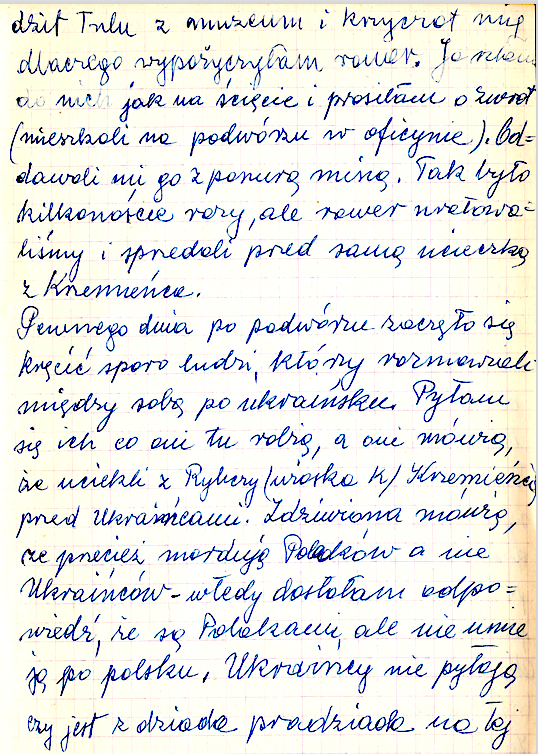 dził Tulu z muzeum i krzyczał mię
dlaczego wypożyczyłam rower. Ja szłam
do nich jak na ścięcie i prosiłam o zwrot
(mieszkali na podwórzu w oficynie). Od=
dawali mi go z ponurą miną. Tak było
kilkanaście razy, ale rower uratowa=
liśmy i sprzedali przed samą ucieczką
z Krzemieńca.
Pewnego dnia po podwórzu zaczęło się
kręcić sporo ludzi, którzy rozmawiali
między sobą po ukraińsku. Pytam
się ich co oni tu robią, a oni mówią,
że uciekli z Rybczy (wioska k/ Krzemieńca)
przed Ukraińcami. Zdziwiona mówię,
że przecież mordują Polaków a nie
Ukraińców - wtedy dostałam odpo=
wiedź, że są Polakami, ale nie umie
ją po polsku. Ukraińcy nie pytają
czy jest z dziada pradziada na tej